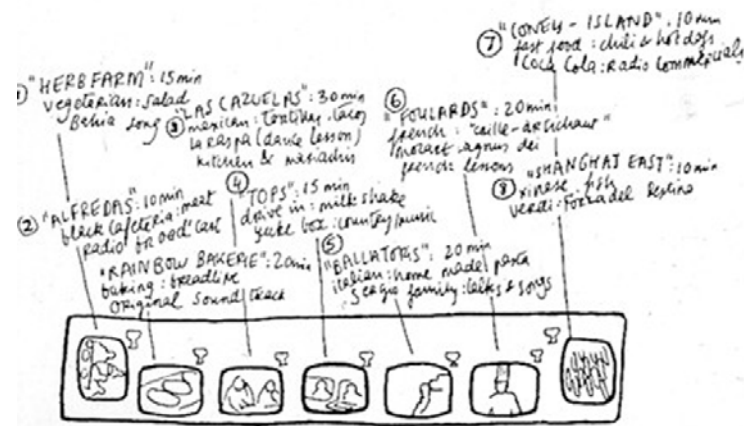 ① "HERB FARM": 15 min
vegetarian: salad
Bahia song
② "ALFREDAS": 10 min
black cafeteria: meat
radio broad cast
"RAINBOW BAKERIE": 20 min
baking: breadlife
original sound track
③ "LAS CAZUELAS": 30 min
mexican: tortillas, tacos
la raspa (dance lesson)
kitchen & mariachis
④ "TOPS": 15 min
drive in: milk shake
juke box: country music
⑤ "BALLATORIS": 20 min
italian: home made pasta
family: talks & songs
⑥ "FOULARDS": 20 min
french:
mozart agnus dei
french lessons
⑦ "CONEY-ISLAND": 10 min
fast food: chili & hot dogs
Coca Cola: radio commercials
⑧ "SHANGHAI EAST": 10 min
xinese: fish
verdi: Forza del Destino